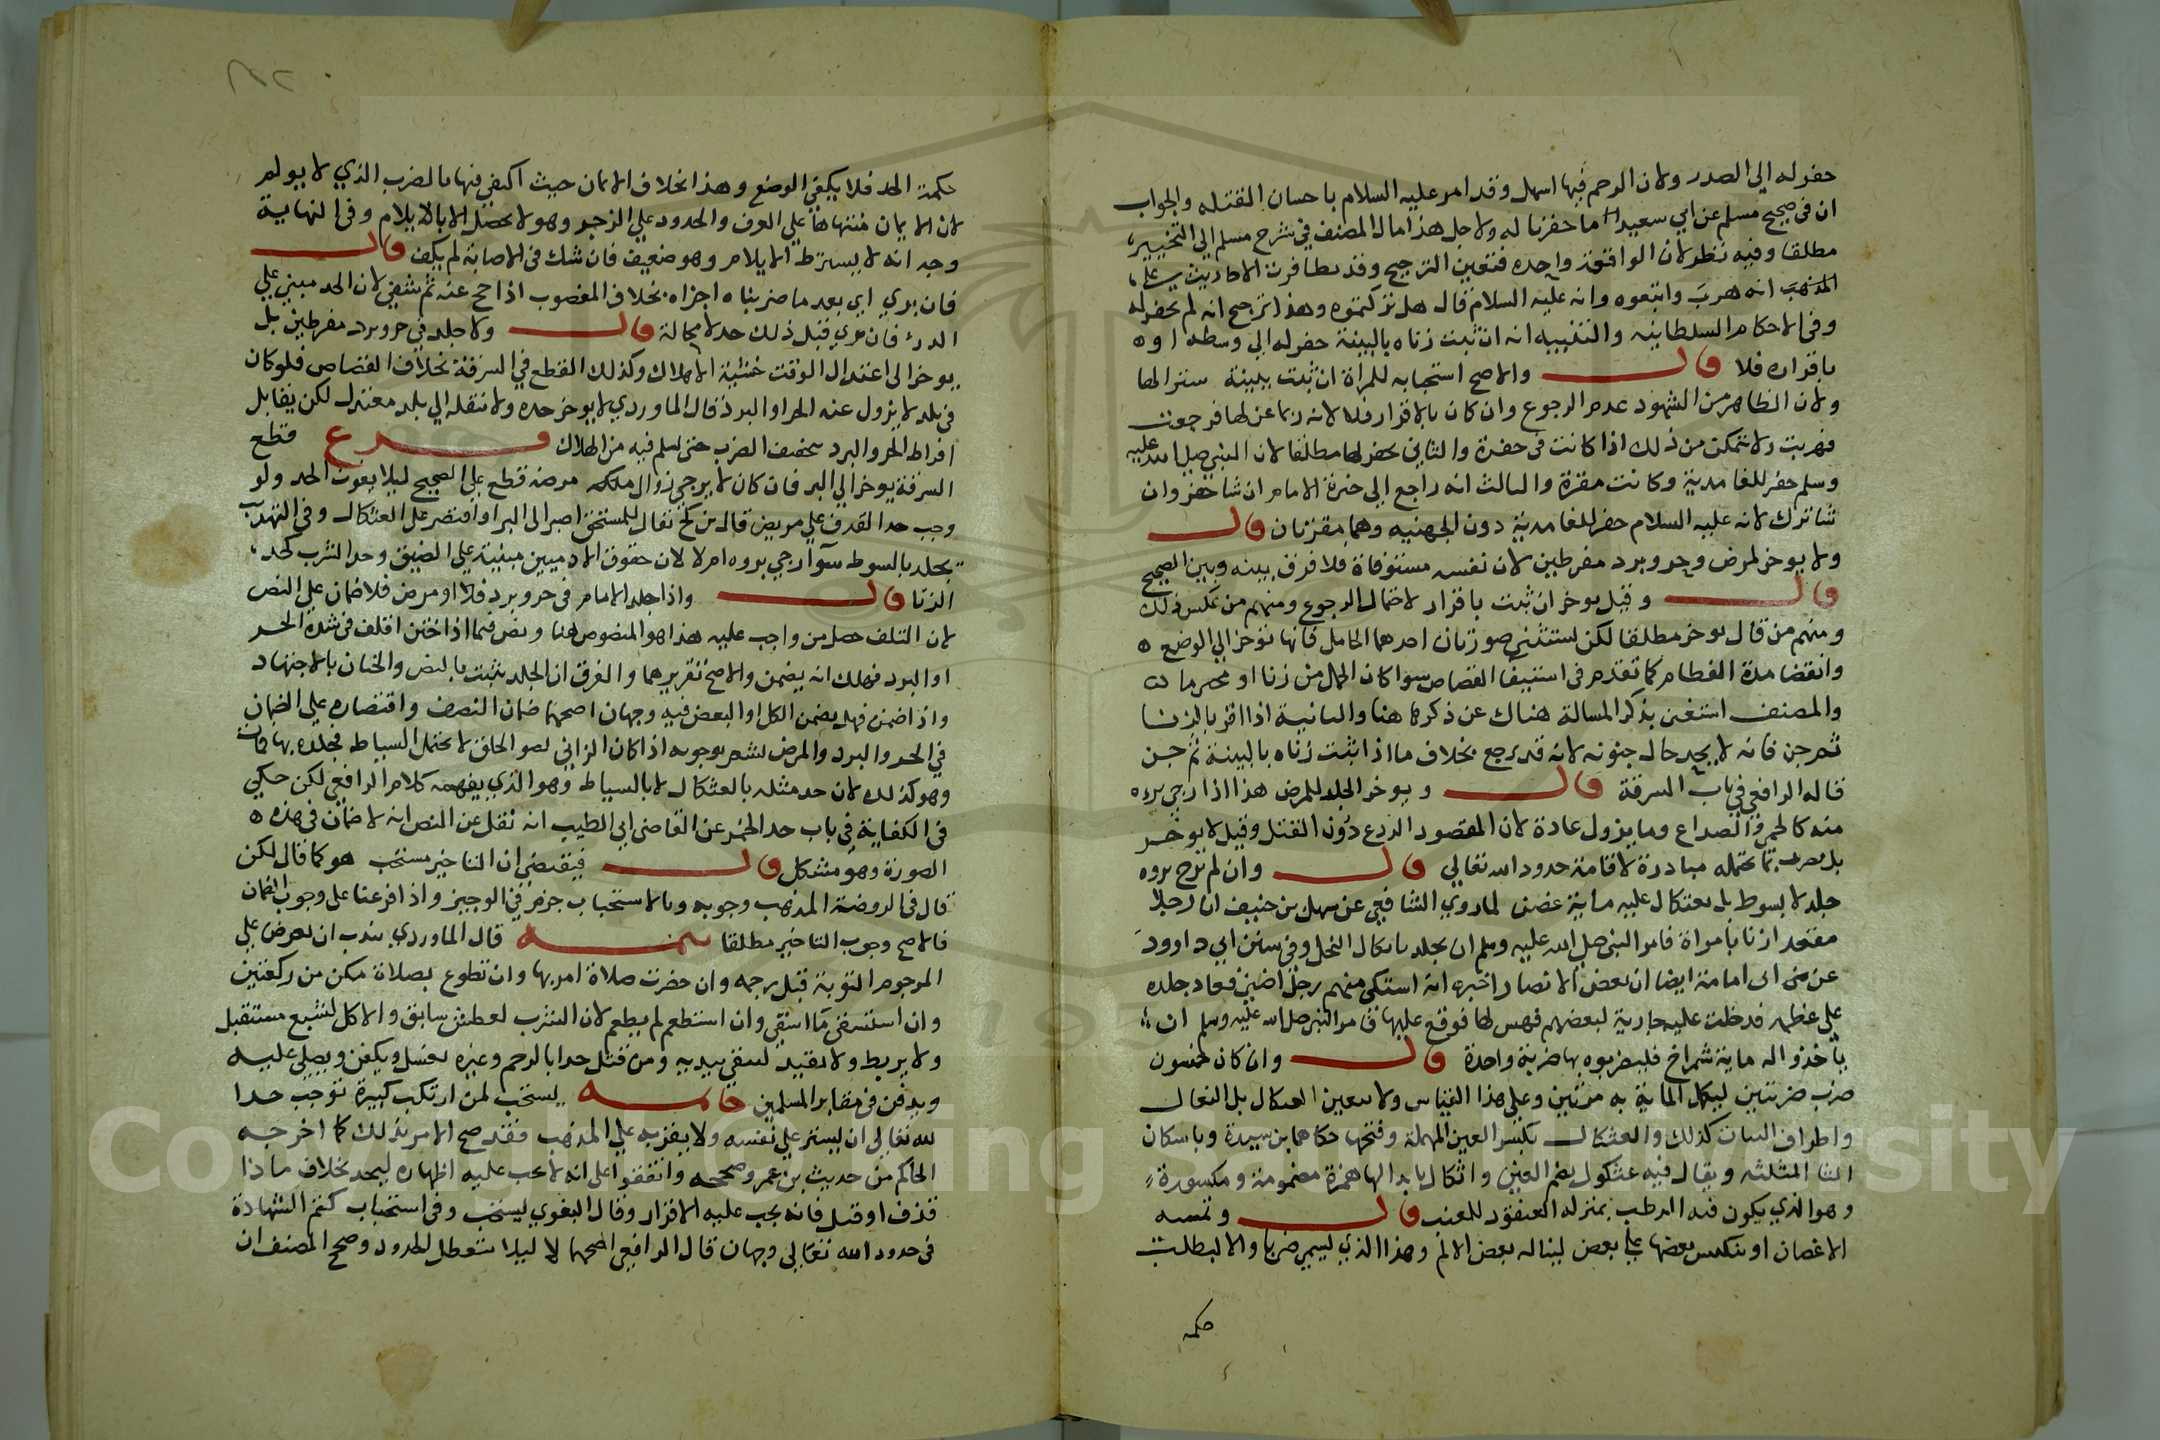 حفر له الي الصدر ولان الرجم فيها اسهل وقد امر عليه السلام باحسان القتله والجواب
ان في صحيح مسلم عن ابي سعيد ما حفرنا له ولاجل هذا مال المصنف في شرح مسلم الي التخيير
مطلقا وفيه نظر لان الواقعة واحده فتعين الترجيح وقد تظافرت الاحاديث علي
انه هرب واتبعوه وانه عليه السلام قال هل تركتموه وهذا ترجح انه لم يحفر له
وفي الاحكام السلطانيه والتنبيه انه ان ثبت زناه بالبينة حفر له الي وسطه او
باقراره فلا قال والاصح استحبابه للمراة ان ثبت ببينة سترا لها
ولان الظاهر من الشهود عدم الرجوع وان كان بالاقرار فلا لانه ربما عن لها فرجعت
فهربت ولا تتمكن من ذلك اذا كانت في حفرة والثاني يحفر لها مطلقا لان النبي صلي الله عليه
وسلم حفر للغامدية وكانت مقرة والثالث انه راجع الي خيرة الامام ان شا حفر وان
شا ترك لانه عليه السلام حفر للغامدية دون الجهنيه وهما مقرتان قال
ولا يوخر لمرض وحر وبرد مفرطين لان نفسه مستوفاة فلا فرق بينه وبين الصحيح
قال وقيل يوخر ان ثبت باقرار لاحتمال الرجوع ومنهم من عكس ذلك
ومنهم من قال يوخر مطلقا لكن يستثني صورتان احدهما الحامل فانها توخر الي الوضع
وانقضا مدة الفطام كما تقدم في استيفا القصاص سوا كان الحمل من زنا او
والمصنف استغني بذكر المسالة هناك عن ذكرها هنا والثانية اذا اقر بالزنا
ثم جن فانه لا يحد حال جنونه لانه قد يرجع بخلاف ما اذا ثبت زناه بالبينة ثم جن
قاله الرافعي في باب السرقة قال ويوخر الجلد للمرض هذا اذا رجي برءه
منه كالحمي والصداع وما يزول عادة لان المقصود الردع دون القتل وقيل لا يوخر
بل يضرب بما يحتمله مبادرة لاقامة حدود الله تعالي قال وان لم يرج بروه
جلد لا بسوط بل بعثكال عليه ماية غصن لما روي الشافعي عن سهل بن حنيف ان رجلا
مقعدا زنا بامراة فامر النبي صلي الله عليه وسلم ان يجلد باثكال النخل وفي سنن ابي داوود
عن ابي امامة ايضا ان بعض الانصار اخبره انه اشتكي منهم رجل اضني فعاد جلده
علي عظم فدخلت عليه جارية لبعضهم فهس لها فوقع عليها فامر النبي صلي الله عليه وسلم ان
ياخذوا له ماية شمراخ فليضربوه بها ضربة واحدة قال وان كان خمسون
ضرب ضربتين ليكمل الماية به مرتين وعلي هذا القياس ولا يتعين العثكال بل النعال
واطراف الثياب كذلك والعثكال بكسر العين المهملة وفتحها حكاهما بن سيدة وباسكان
الثا المثلثه ويقال فيه عثكول بضم العين واثكال بابدالها همزة مضمومة ومكسورة
وهو الذي يكون فيه الرطب بمنزلة العنقود للعنب قال وتمسه
الاغصان او ينكبس بعضها علي بعض ليناله بعض الالم وهذا الذي ليسمي ضربا والا لبطلت
حكمة
حكمة الحد فلا يكفي الوضع وهذا بخلاف الايمان حيث اكتفي فيها بالضرب الذي لا يولم
لان الايمان مبناها علي العرف والحدود علي الزجر وهو لا يحصل الا بالايلام وفي النهاية
وجه انه لا يشترط الايلام وهو ضعيف فان شك في الاصابة لم يكف قال
فان بري اي بعد ما ضربناه اجزاه بخلاف المغصوب اذا حج عنه ثم شفي لان الحد مبني علي
الدرء فان بري قبل ذلك حد لا محالة قال ولا جلد في حر وبرد مفرطين بل
يوخر الي اعتدال الوقت خشية الهلاك وكذلك القطع في السرقة بخلاف القصاص فلو كان
في بلد لا يزول عنه الحر او البرد قال الماوردي لا يوخر حده ولا ننقله الي بلد معتدل لكن يقابل
افراط الحر والبرد بتخفيف الضرب حتي يسلم فيه من الهلاك فرع قطع
السرقة يوخر الي البر فان كان لا يرجي زوال مرضه قطع علي الصحيح ليلا يفوت الحد ولو
وجب حد القذف علي مريض قال بن كج يقال للمستحق اصبر الي البر او اقتصر علي العثكال وفي التهذيب
يجلد بالسوط سوا رجي بروه ام لا لان حقوق الادميين مبنية علي الضيق وحد الشرب كحد
الزنا قال واذا جلد الامام في حر وبرد او مرض فلا ضمان علي النص
لان التلف حصل من واجب عليه هذا هو المنصوص هنا ونص فيما اذا ختن اقلف في شدة الحر
او البرد فهلك انه يضمن والاصح تقريرهما والفرق ان الجلد يثبت بالنص والختان بالاجتهاد
واذا ضمن فهل يضمن الكل او البعض فيه وجهان اصحهما ضمان النصف واقتصاره علي الضمان
في الحر والبرد والمرض يشعر بوجوبه اذا كان الزاني نضو الخلق لا يحتمل السياط فجلده بها فمات
وهو كذلك لان حد مثله بالعثكال لا بالسياط وهو الذي يفهمه كلام الرافعي لكن حكي
في الكفاية في باب حد الخمر عن القاضي ابي الطيب انه نقل عن النص انه لا ضمان في هذه
الصورة وهو مشكل قال فيقتضي ان التاخير مستحب هو كما قال لكن
قال في الروضة المذهب وجوبه وبالاستحباب جزم في الوجيز واذا فرعنا علي وجوب الضمان
فالاصح وجوب التاخير مطلقا تتمه قال الماوردي يندب ان يعرض علي
المرجوم التوبة قبل رجمه وان حضرت صلاة امر بها وان تطوع بصلاة مكن من ركعتين
وان استسقي ما اسقي وان استطعم لم يطعم لان الشرب لعطش سابق والاكل لشبع مستقبل
ولا يربط ولا يقيد ليتقي بيديه ومن قتل حدا بالرجم وغيره يغسل ويكفن ويصلي عليه
ويدفن في مقابر المسلمين خاتمه يستحب لمن ارتكب كبيرة توجب حدا
لله تعالي ان يستر علي نفسه ولا يفر به علي المذهب فقد صح الامر بذلك كما اخرجه
الحاكم من حديث بن عمر وصححه واتفقوا علي انه لا يجب عليه اظهاره ليحد بخلاف ما اذا
قذف او قتل فانه يجب عليه الاقرار وقال البغوي يستحب وفي استحباب كتم الشهادة
في حدود الله تعالي وجهان قال الرافعي اصحهما لا ليلا تتعطل الحدود وصحح المصنف ان
Copyright © King Saud University